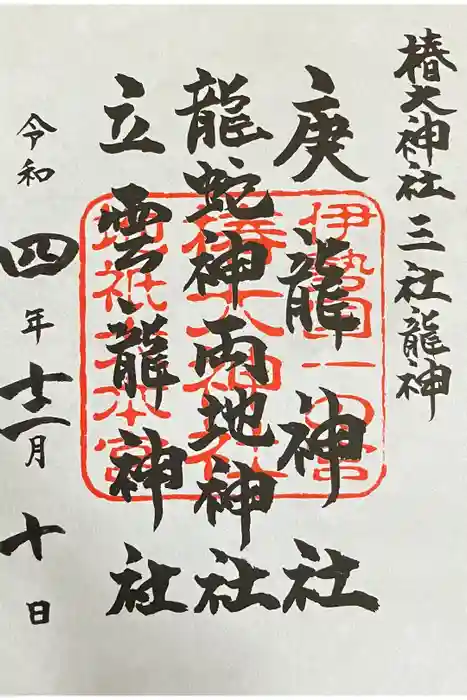 椿大神社 三社龍神
庚龍神社
龍蛇神両地神社
立雲龍神社
令和四年十二月十日
伊勢国一の宮
椿大神社
地祇大本宮